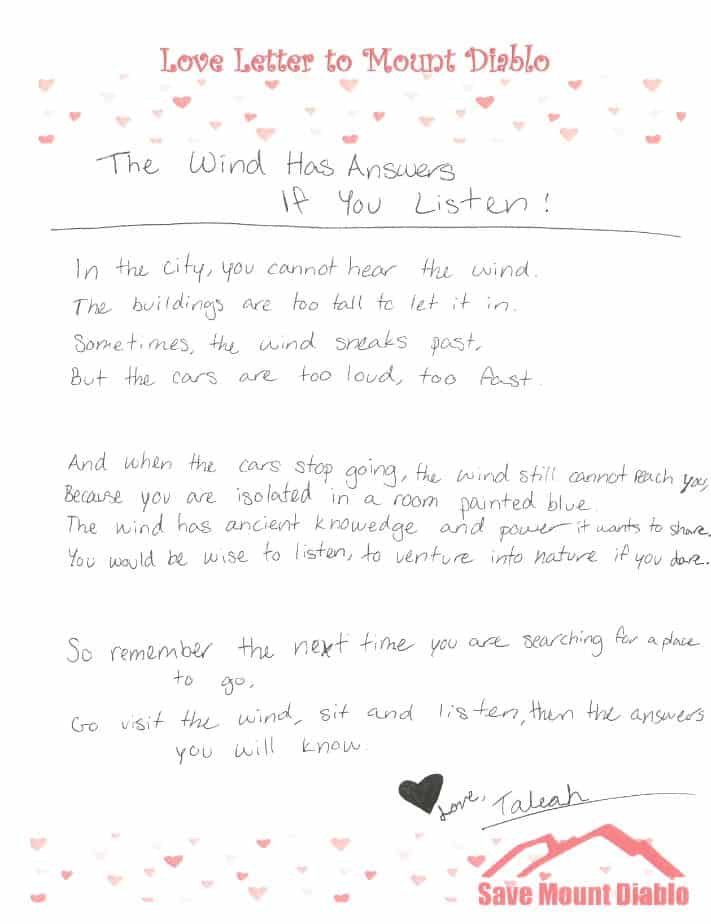 Love Letter to Mount Diablo
The Wind Has Answers
If You Listen!
In the city, you cannot hear the wind.
The buildings are too tall to let it in.
Sometimes, the wind sneaks past,
But the cars are too loud, too fast.
And when the cars stop going, the wind still cannot reach you,
Because you are isolated in a room painted blue.
The wind has ancient knowedge and power it wants to share.
You would be wise to listen, to venture into nature if you dare.
So remember the next time you are searching for a place
to go,
Go visit the wind, sit and listen, then the answers
you will know.
Love, Taleah
Save Mount Diablo